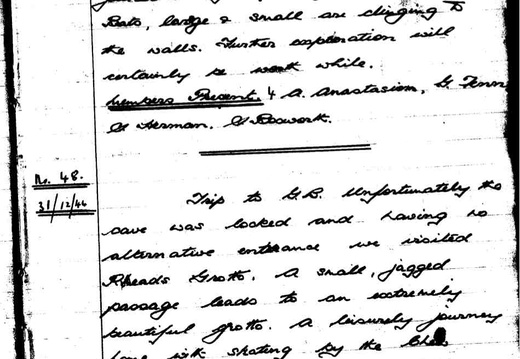 Bats, large & small are clinging to
the walls. Further exploration will
certainly be worth while.
Members Present. 4 A. Anastasiou, G. Fenn
G Herman, G Bosworth.
No. 48.
31/12/46
Trip to G.B. Unfortunately the
cave was locked and having no
alternative entrance we visited
Rheads Grotto. A small, jagged
passage leads to an extremely
beautiful grotto. A leisurely journey
home with skating by the